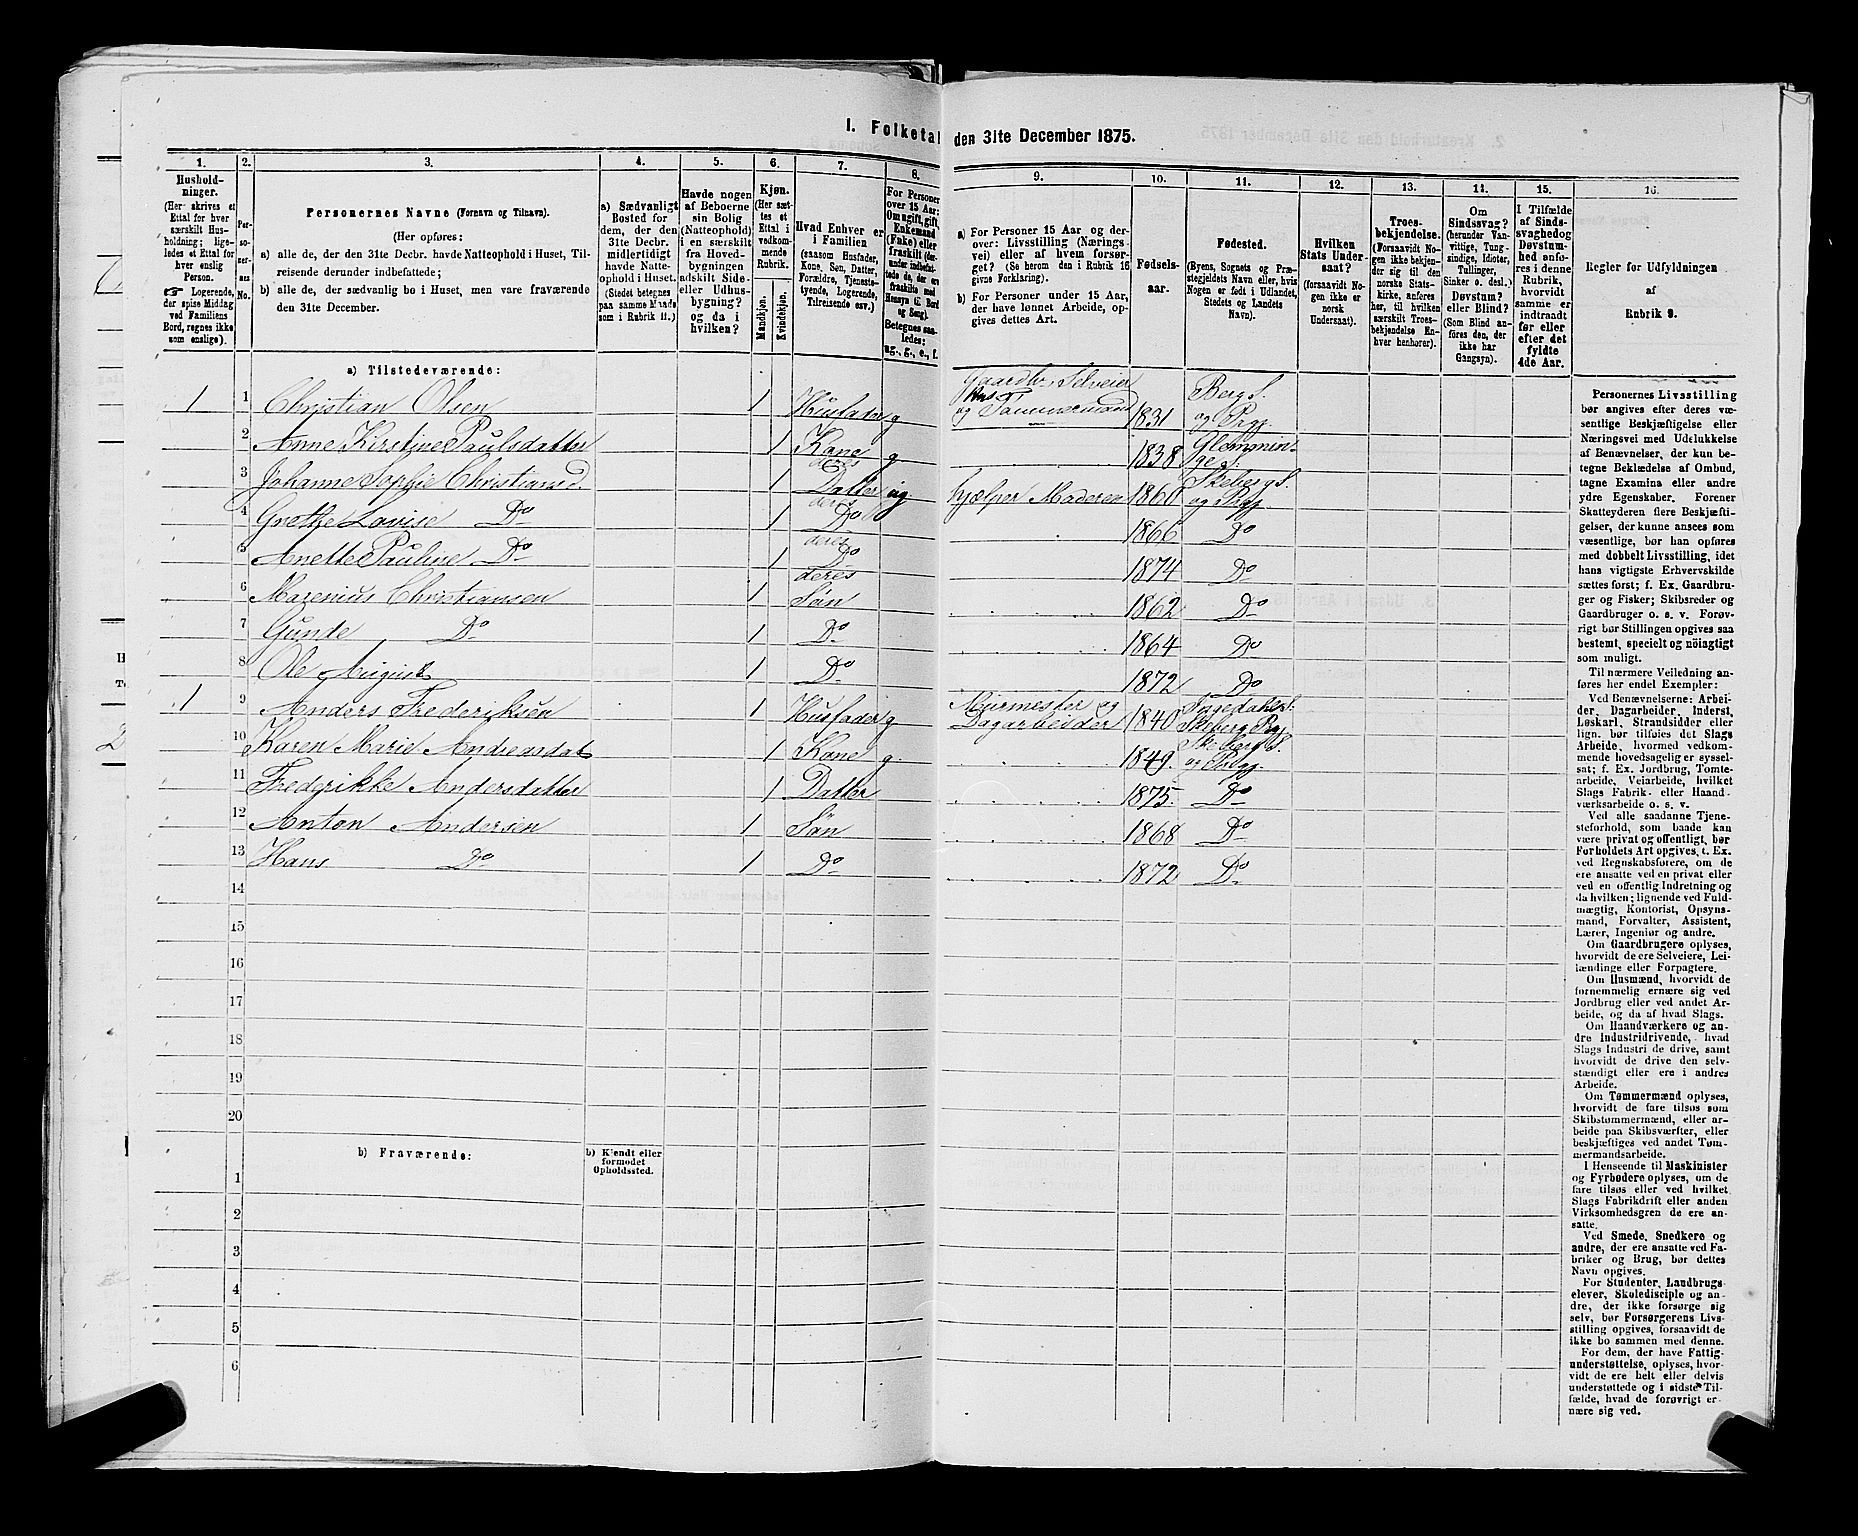 I. Folketal den 31te December 1875.
1. 2. 3. 4. 5. 6. 7. 8. 9. 10. 11. 12. 13. 14. 15. 16.
Hushold-
ninger.
(Her skrives et
Ettal for hver
særskilt Hus-
holdning; lige-
ledes et Ettal for
hver enslig
Person.
☞ Logerende,
der spise Middag
ved Familiens
Bord, regnes ikke
som enslige).
Per-
so-
ner-
nes
No.
Personernes Navne (Fornavn og Tilnavn).
(Her opføres:
a) alle de, der den 31te Decbr. havde Natteophold i Huset, Til-
reisende derunder indbefattede;
b) alle de, der sædvanlig bo i Huset, men vare fraværende
den 31te December.
a) Sædvanligt
Bosted for
dem, der den
31te Decbr.
midlertidigt
havde Natte-
ophold i Huset.
(Stedet betegnes
paa samme Maade
som i Rubrik 11.)
Havde nogen
af Beboerne
sin Bolig
(Natteophold)
i en særskilt
fra Hoved-
bygningen
adskilt Side-
eller Udhus-
bygning?
og da i
hvilken?
Kjøn.
(Her sæt-
tes et
Ettal i
vedkom-
mende
Rubrik.
Mandkjøn.
Kvindekjøn.
Hvad Enhver er
i Familien
(saasom Husfader,
Kone, Søn, Datter,
Forældre, Tjeneste-
tyende, Logerende,
Tilreisende osv.)
For Personer
over 15 Aar:
Om ugift, gift,
Enkemand
(Enke) eller
fraskilt (der-
under indbefat-
tede de, der ere
fraskilte med
Hensyn til Bord
og Seng).
Betegnes saa-
ledes:
ug., g., e., f.
a) For Personer 15 Aar og der-
over: Livsstilling (Nærings-
vei) eller af hvem forsør-
get? (Se herom den i Rubrik 16
givne Forklaring).
b) For Personer under 15 Aar,
der have lønnet Arbeide, op-
gives dettes Art.
Fødsels-
aar.
Fødested.
(Byens, Sognets og Præ-
stegjeldets Navn eller, hvis
Nogen er født i Udlandet,
Stedets og Landets
Navn).
Hvilken
Stats Under-
saat?
(forsaavidt No-
gen ikke er
norsk
Undersaat).
Troes-
bekjendelse.
(Forsaavidt No-
gen ikke bekjen-
der sig til den
norske Stats-
kirke, anføres
her, til hvilken
særskilt Troes-
bekjendelse En-
hver henhører).
Om
Sindssvag?
(herunder Van-
vittige, Tung-
sindige, Idioter,
Tullinger,
Sinker o. desl.)
Døvstum?
eller Blind?
(Som Blind an-
føres den, der
ikke har
Gangsyn).
I Tilfælde
af Sinds-
svaghedog
Døvstum-
hed anfø-
res i denne
Rubrik,
hvorvidt
samme er
indtraadt
før eller
efter det
fyldte
4de Aar.
Regler for Udfyldningen
af
Rubrik 9.
a) Tilstedeværende:
1 1 Christian Olsen 1 Husfader g Gaardbr. Selveier og Tømmermand 1831 Berg S. og Prgj.
2 Anne Kirstine Paulsdatter 1 Kone g 1838 Glemminge S.
3 Johanne Sophie Christiansd. 1 deres Datter ug hjælper Moderen 1860 Skeberg S. og Prgj
4 Grethe Lovise Do 1 deres Do 1866 Do
5 Anette Pauline Do 1 deres Do 1874 Do
6 Marenius Christiansen 1 deres Søn 1862 Do
7 Gunde Do 1 Do 1864 Do
8 Ole August 1 Do 1872 Do
1 9 Anders Frederiksen 1 Husfader g Murmester og Dagarbeider 1840 Skeberg Prgj
10 Karen Marie Andreasdat 1 Kone g. 1849. Skeberg S. og Prgj.
11 Frederikke Andersdatter 1 Datter 1875. Do
12 Anton Andersen 1 Søn 1868 Do
13 Hans Do 1 Do 1872 Do
14
15
16
17
18
19
20
b) Fraværende:
b) Kjendt eller
formodet
Opholdssted.
1
2
3
4
5
6
Personernes Livsstilling
bør angives efter deres væ-
sentlige Beskjæftigelse eller
Næringsvei med Udelukkelse
af Benævnelser, der kun be-
tegne Beklædelse af Ombud,
tagne Examina eller andre
ydre Egenskaber. Forener
Skatteyderen flere Beskjæfti-
gelser, der kunne ansees som
væsentlige, bør han opføres
med dobbelt Livsstilling, idet
hans vigtigste Erhvervskilde
sættes først; f. Ex. Gaardbru-
ger og Fisker; Skibsreder og
Gaardbruger o. s. v. Forøv-
rigt bør Stillingen opgives saa
bestemt, specielt og nöiagtigt
som muligt.
Til nærmere Veiledning an-
føres her endel Exempler:
Ved Benævnelserne: Arbei-
der, Dagarbeider, Inderst,
Løskarl, Strandsidder eller
lign. bør tilføies det Slags
Arbeide, hvormed vedkom-
mende hovedsagelig er syssel-
sat; f. Ex. Jordbrug, Tomte-
arbeide, Veiarbeide, hvilket
Slags Fabrik- eller Haand-
værksarbeide o. s. v.
Ved alle saadanne Tjene-
steforhold, som baade kan
være privat og offentligt, bør
Forholdets Art opgives, t. Ex.
ved Regnskabsførere, om de
ere ansatte ved en privat eller
ved en offentlig Indretning og
da hvilken; lignende ved Fuld-
mægtig, Kontorist, Opsyns-
mand, Forvalter, Assistent,
Lærer, Ingeniør og andre.
Om Gaardbrugere oplyses,
hvorvidt de ere Selveiere, Lei-
lændinge eller Forpagtere.
Om Husmænd, hvorvidt de
fornemmelig ernære sig ved
Jordbrug eller ved andet Ar-
beide, og da af hvad Slags.
Om Haandværkere og an-
dre Industridrivende, hvad
Slags Industri de drive, samt
hvorvidt de drive den selv-
stændigt eller ere i andres
Arbeide.
Om Tømmermænd oplyses,
hvorvidt de fare tilsøs som
Skibstømmermænd, eller ar-
beide paa Skibsværfter, eller
beskjæftiges ved andet Tøm-
mermandsarbeide.
I Henseende til Maskinister
og Fyrbødere oplyses, om de
fare tilsøs eller ved hvilket
Slags Fabrikdrift eller anden
Virksomhedsgren de ere an-
satte.
Ved Smede, Snedkere og
andre, der ere ansatte ved Fa-
briker og Brug, bør dettes
Navn opgives.
For Studenter, Landbrugs-
elever, Skoledisciple og an-
dre, der ikke forsørge sig
selv, bør Forsørgerens Livs-
stilling opgives, forsaavidt de
ikke bo sammen med denne.
For dem, der have Fattig-
understøttelse, oplyses, hvor-
vidt de ere helt eller delvis
understøttede og i sidste Til-
fælde, hvad de forøvrigt er-
nære sig ved.